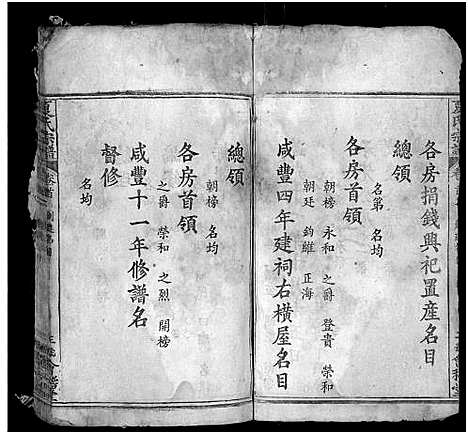 各房捐錢興祀置産名目
總領
名第 名均
各房首領
朝榜 永和 之爵 登貴 榮和
朝廷 鈞維 正海
咸豐四年建祠右橫屋名目
總領
朝榜 名均
各房首領
之爵 榮和 之烈 開榜
咸豐十一年修譜名
督修
名均
夏氏宗譜